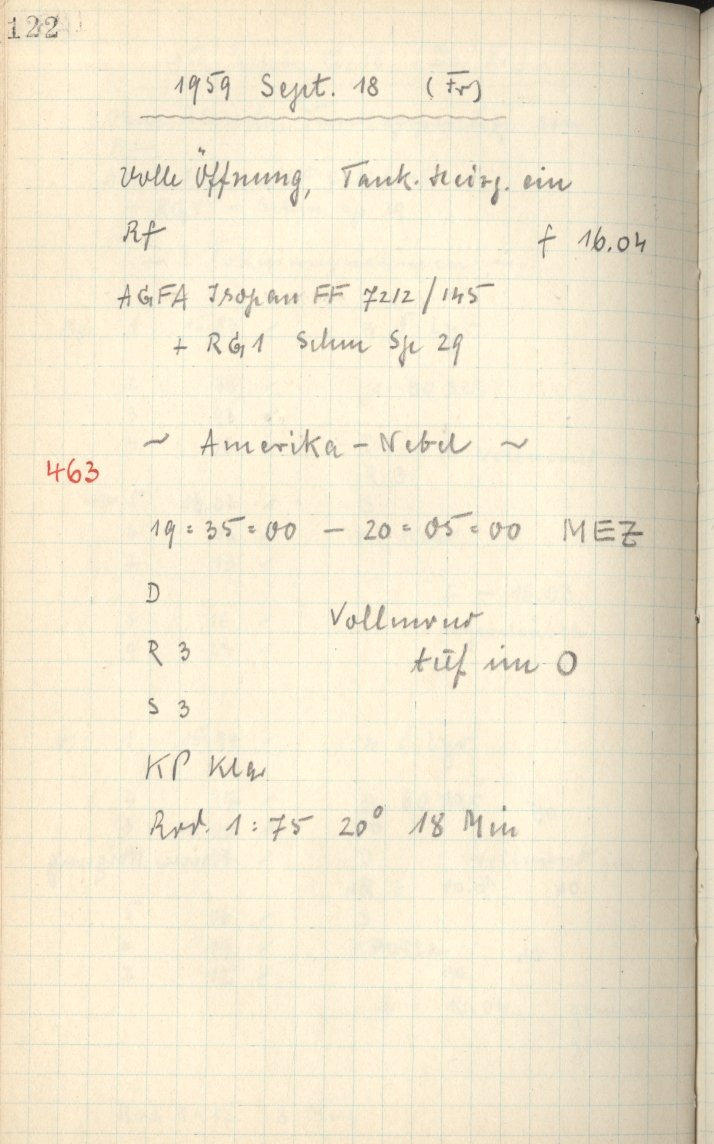 122
1959 Sept. 18 (Fr)
Volle Öffnung, Tauk. Heizg. ein
Rf f 16.04
AGFA Isopan FF 7212/145
+ RG1 Schm Sp 29
~ Amerika-Nebel ~
463
19=35=00 — 20=05=00 MEZ
D
Vollmond
R 3
tief im O
S 3
KP Klar
Rod. 1:75 20° 18 Min